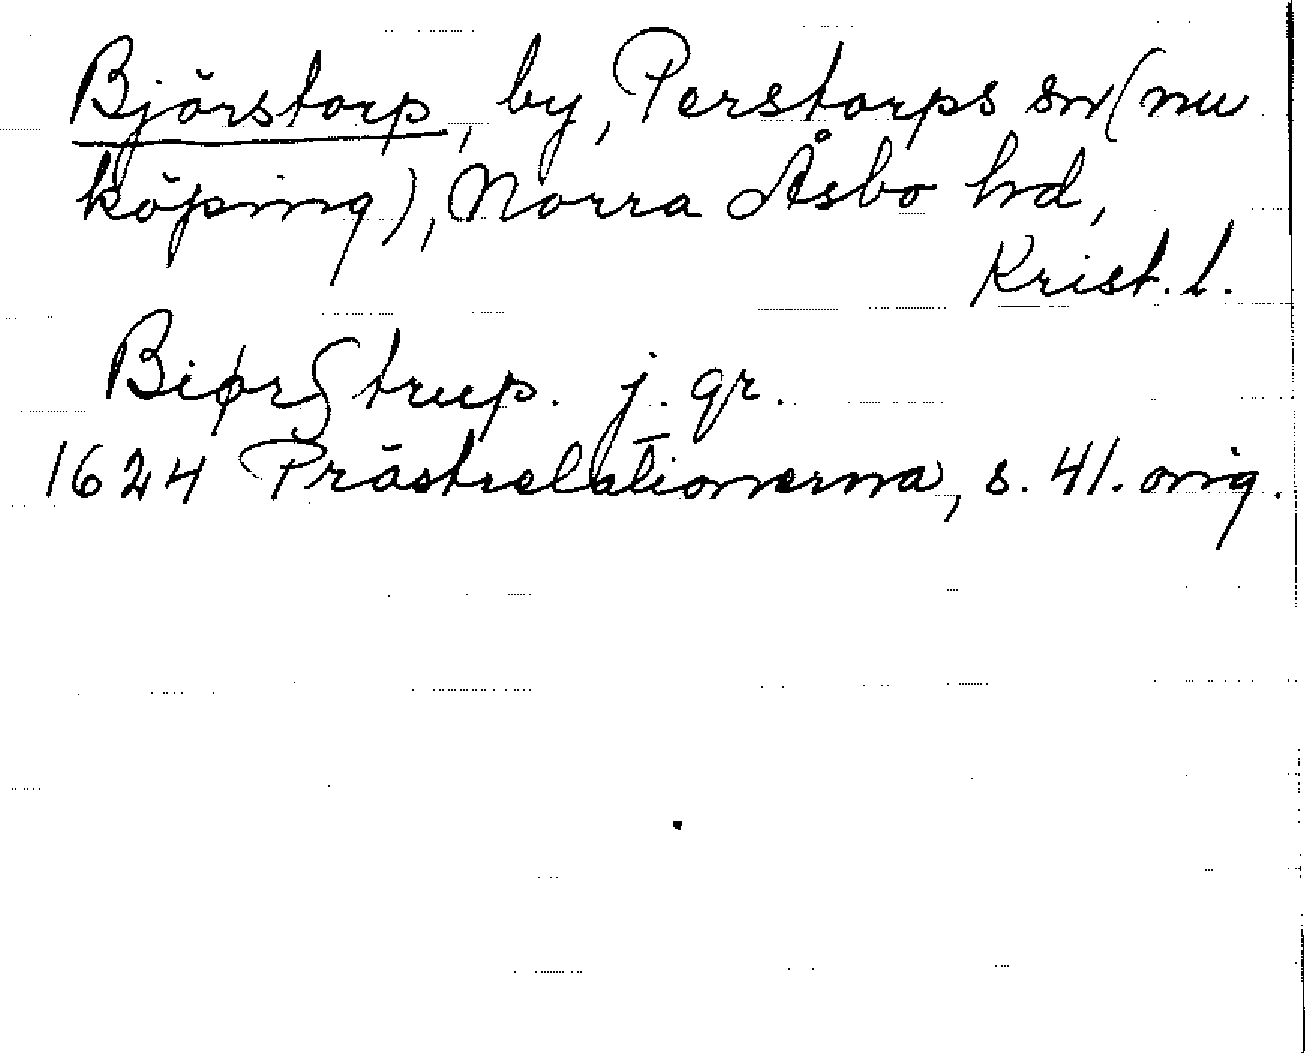 Björstorp, by, Perstorps sn (nu
köping), Norra Åsbo hd,
Krist. l.
BiørStrup. j. gr.
1624 Prästrelationerna, s. 41. orig.